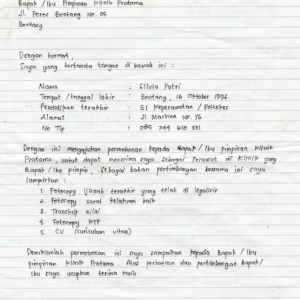 Bapak / Ibu Pimpinan Klinik Pratama
Jl. Poros Bontang No. 05
Bontang
Dengan hormat,
Saya yang bertanda tangan di bawah ini :
Nama : Silvia Putri
Tempat / tanggal lahir : Bontang, 16 Oktober 1996
Pendidikan terakhir : S1 Keperawatan / Poltekes
Alamat : Jl Martina No. 76
No Tlp : 085 744 610 331
Dengan ini mengajukan permohonan kepada Bapak / Ibu pimpinan Klinik
Pratama, untuk dapat menerima saya sebagai Perawat di Klinik yang
Bapak / Ibu pimpin, sebagai bahan pertimbangan bersama ini saya
lampirkan :
1. Fotocopy Ijazah terakhir yang telah di legalisir
2. Fotocopy surat kelakuan baik
3. Transkip nilai
4. Fotocopy KTP
5. CV (curiculum vitae)
Demikianlah permohonan ini saya sampaikan kepada Bapak / Ibu
pimpinan Klinik Pratama. Atas perhatian dan pertimbangan Bapak /
Ibu saya ucapkan terima kasih.